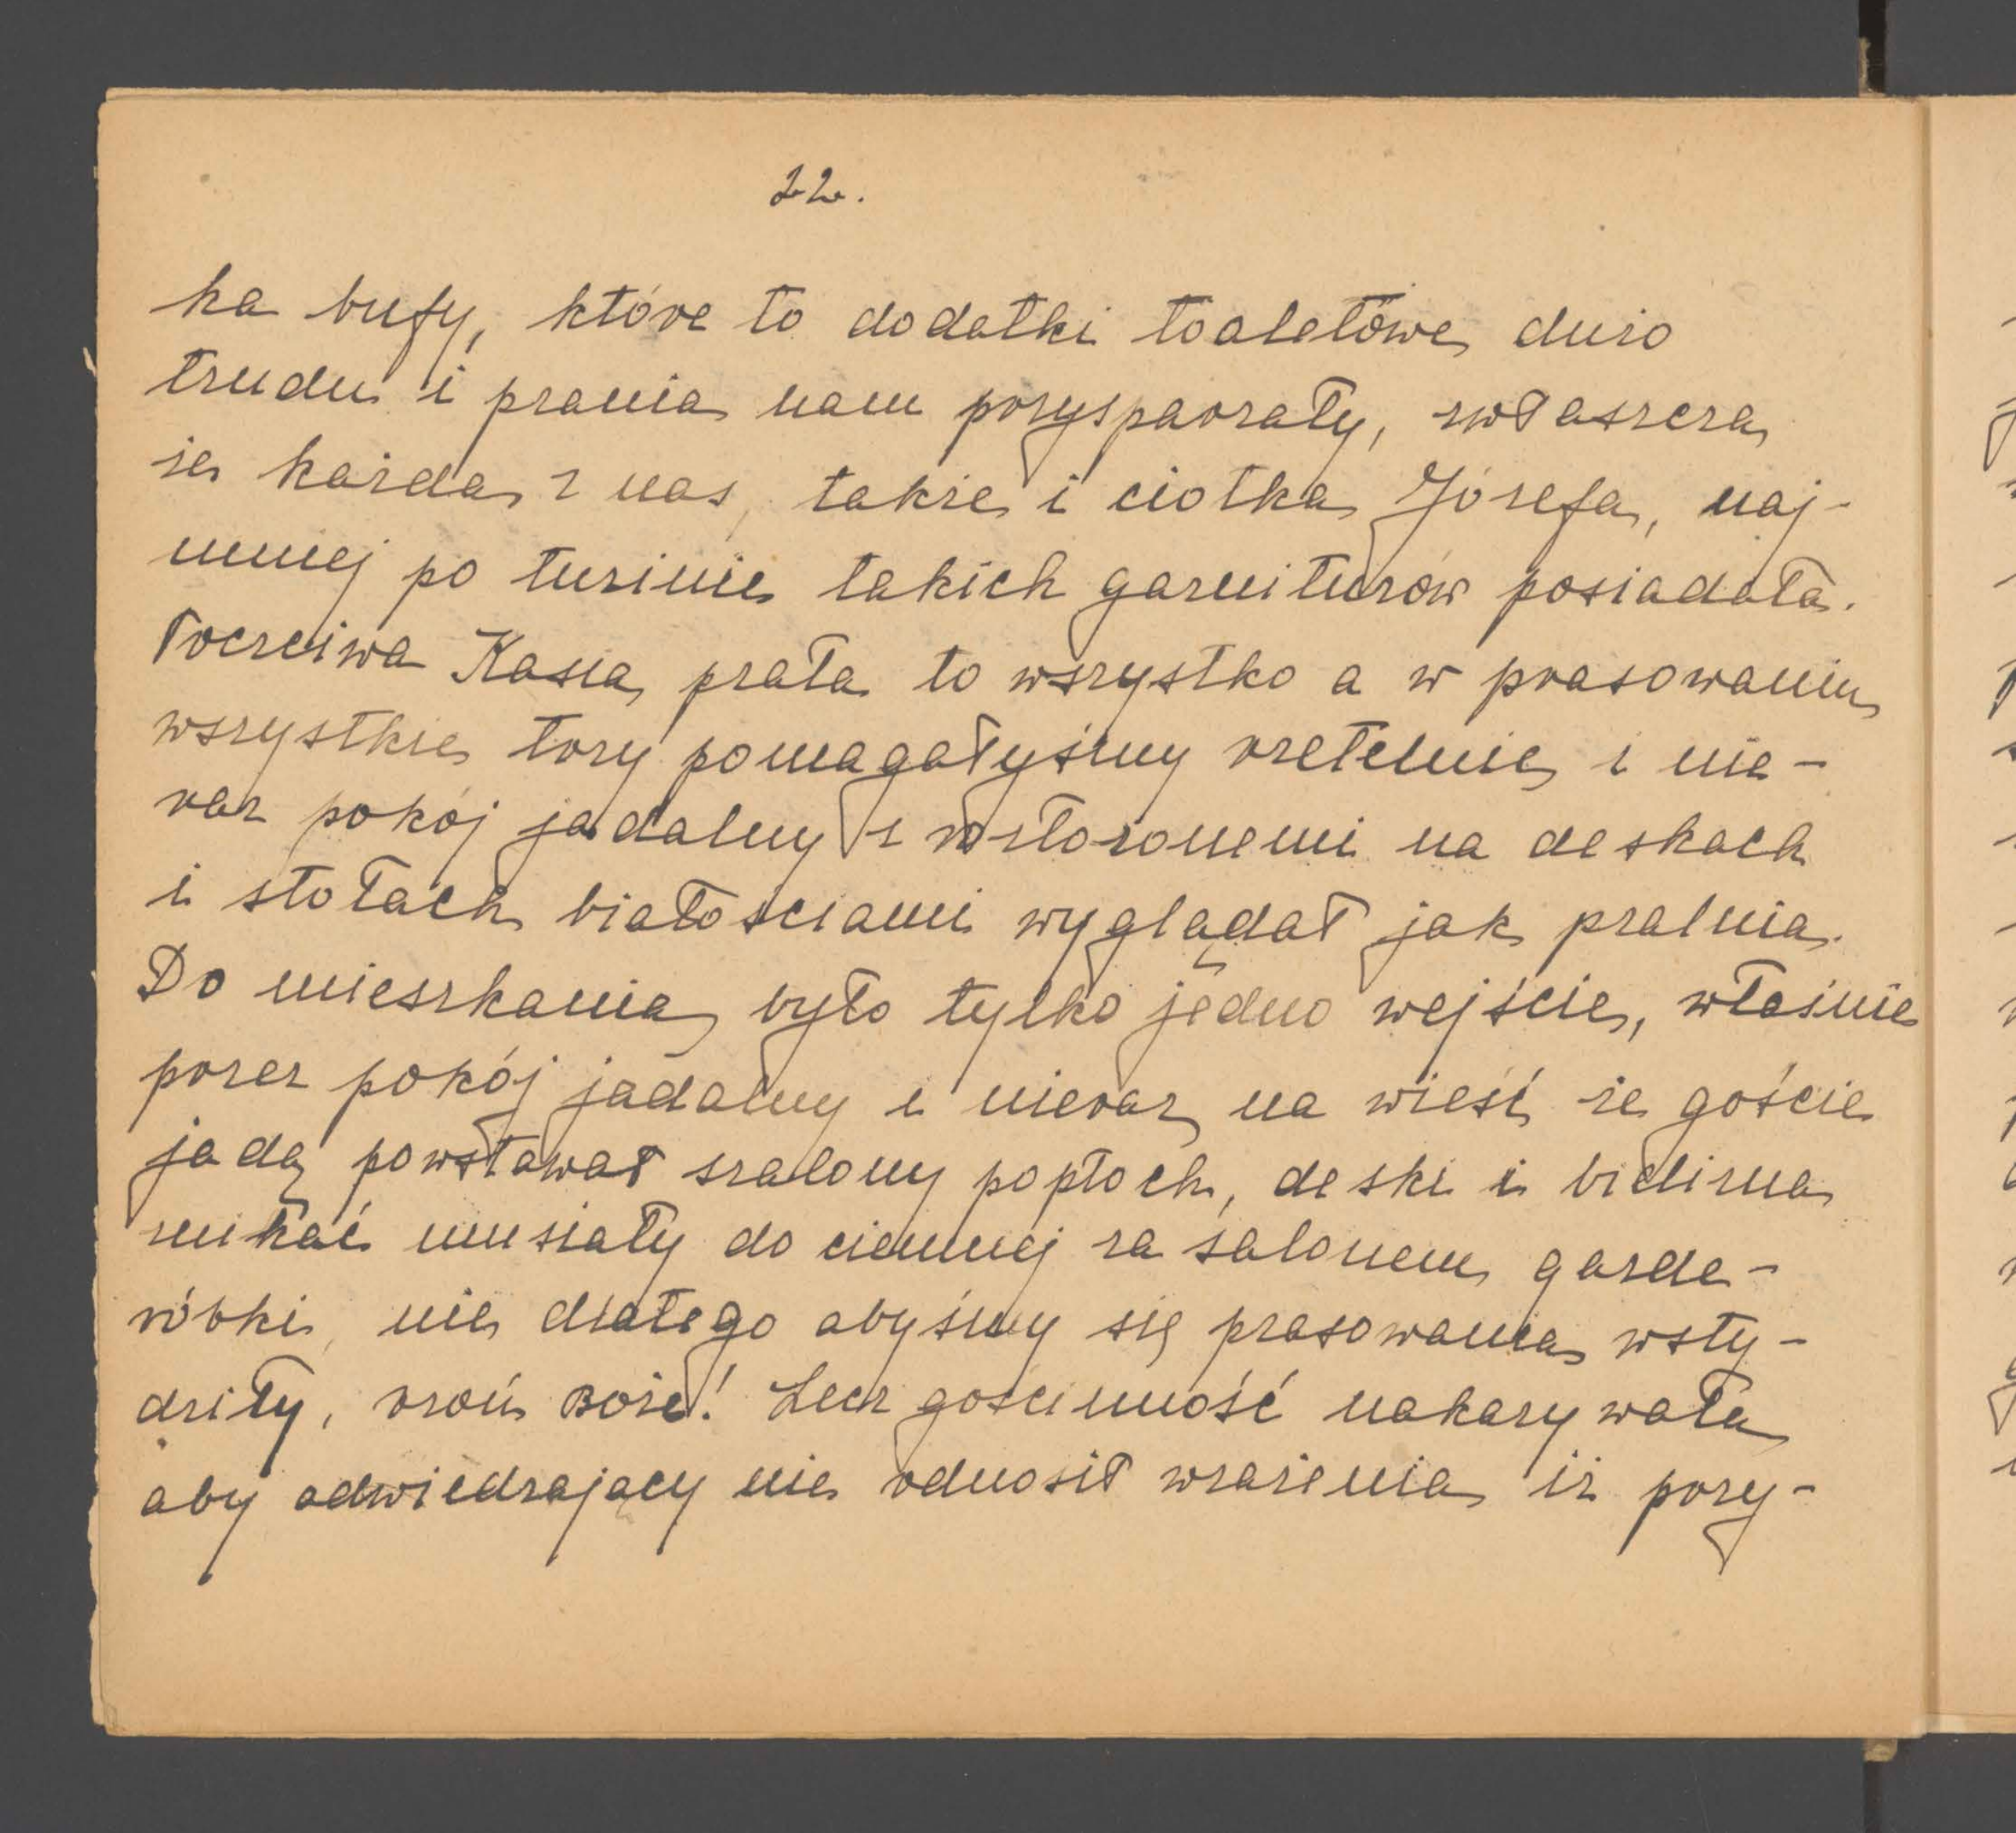 22.
ka bufy, które to dodatki toaletowe dużo
trudu i prania nam przysparzały, zwłaszcza
że każda z nas, także i ciotka Józefa, naj-
mniej po tuzinie takich garniturów posiadała.
Poczciwa Kasia prała to wszystko a w prasowaniu
wszystkie trzy pomagałyśmy rzetelnie i nie-
raz pokój jadalny z rozłożonemi na deskach
i stołach białościami wyglądał jak pralnia.
Do mieszkania było tylko jedno wejście, właśnie
przez pokój jadalny i nieraz na wieść że goście
jadą powstawał szalony popłoch, deski i bielizna
znikać musiały do ciemnej za salonem garde-
róbki, nie dlatego abyśmy się prasowania wsty-
dziły, broń Boże! Lecz gościnność nakazywała
aby odwiedzający nie odnosił wrażenia iż przy-